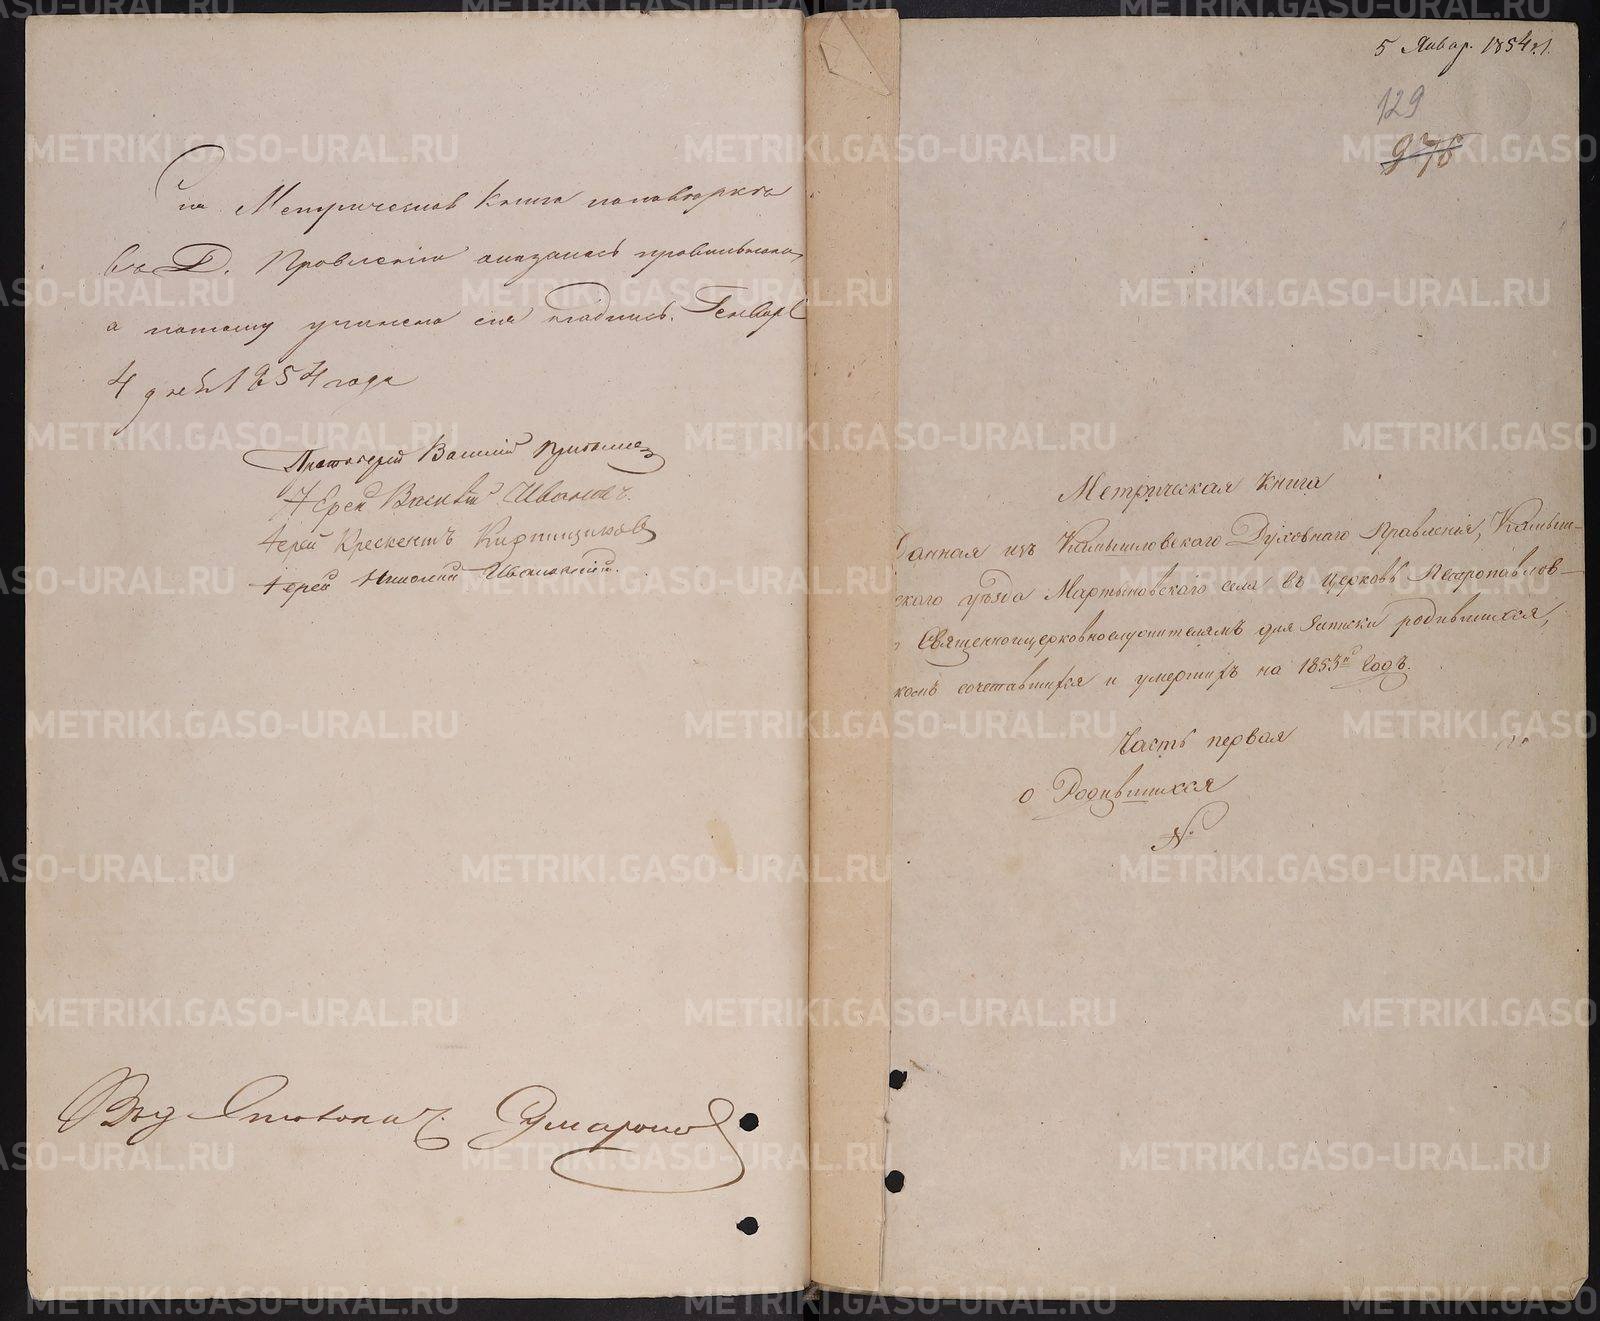 Сiя Метрическая Книга по поверкѣ
въ Д. Правленiи оказалась правильною,
а потому учинена сiя надпись. Генваря
4 дня 1854 года
Протоiерей Василiй
Iерей Василiй Ивановъ.
Iерей Крескентъ Кирпищиковъ
Iерей Николай Ивановскiй.
5 Январ. 1854 г.
129
976
Метрическая книга
Данная изъ Камышловскаго Духовнаго Правленiя, Камыш-
скаго уѣзда Мартыновскаго села въ церковь Петропавлов-
Священноцерковнослужителямъ для записки родившихся,
комъ сочетавшихся и умершихъ на 1853й Годъ.
Часть первая
о Родившихся
№